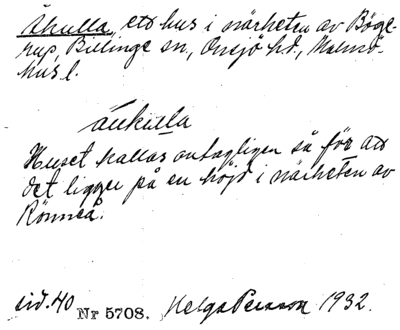 Åkulla, ett hus i närheten av Böge-
rup, Billinge sn, Onsjö hd., Malmö-
hus l.
åukulla
Huset kallas antagligen så för att
det ligger på en höjd i närheten av
Rönneå.
sid. 40 Nr 5708. Helga Persson 1932.